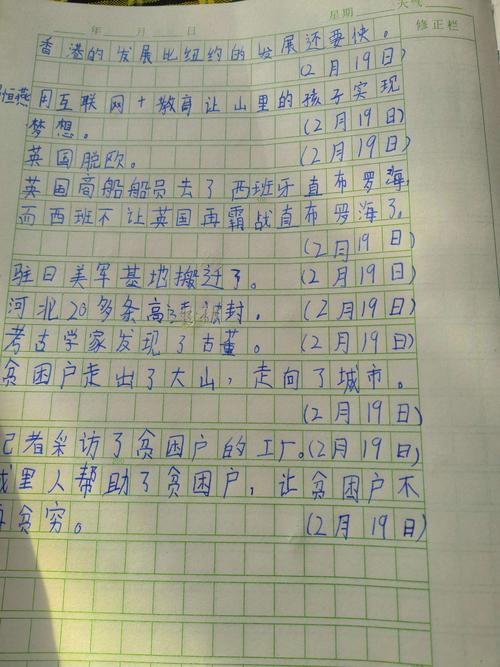 年 月 日 星期 天气
修正栏
香港的发展比纽约的发展还要快。
(2月19日)
恒燕用互联网+教育让山里的孩子实现
梦想。 (2月19日)
英国脱欧。 (2月19日)
英国商船船员去了西班牙直布罗海,
而西班不让英国再霸战直布罗海了。
(2月19日)
驻日美军基地搬迁了。 (2月19日)
河北20多条高速被封。 (2月19日)
考古学家发现了古董。 (2月19日)
贫困户走出了大山，走向了城市。
(2月19日)
记者采访了贫困户的工厂。(2月19日)
城里人帮助了贫困户，让贫困户不
再贫穷。 (2月19日)